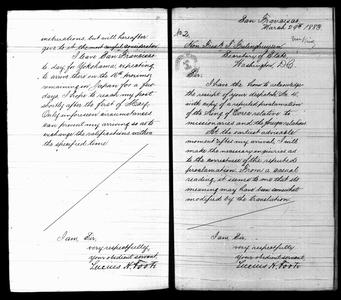 instructions, but will hereafter
give to it the most careful consideration
I leave San Francisco
to-day for Yokohama, expecting
to arrive there on the 16th proximo,
remaining in Japan for a few
days. I hope to reach my post
shortly after the first of May.
Only unforeseen circumstances
can prevent my arriving so as to
exchange the ratifications within
the specified time.
I am Sir,
very respectfully,
your obedient servant.
Lucius H. Foote
San Francisco
March 29th 1883
No 2.
Hon. Fredk T. Frelinghuysen
Secretary of State
Washington, D.C.
Sir:
I have the honor to acknowledge
the receipt of your despatch No 4,
with copy of a reputed proclamation
of the King of Corea relative to
missionaries and the foreign relations.
At the earliest advisable
moment after my arrival, I will
make the necessary enquiries as
to the correctness of the reputed
proclamation. From a casual
reading, it seems to me that its
meaning may have been somewhat
modified by the translation.
I am Sir,
very respectfully
your obedient servant
Lucius H. Foote